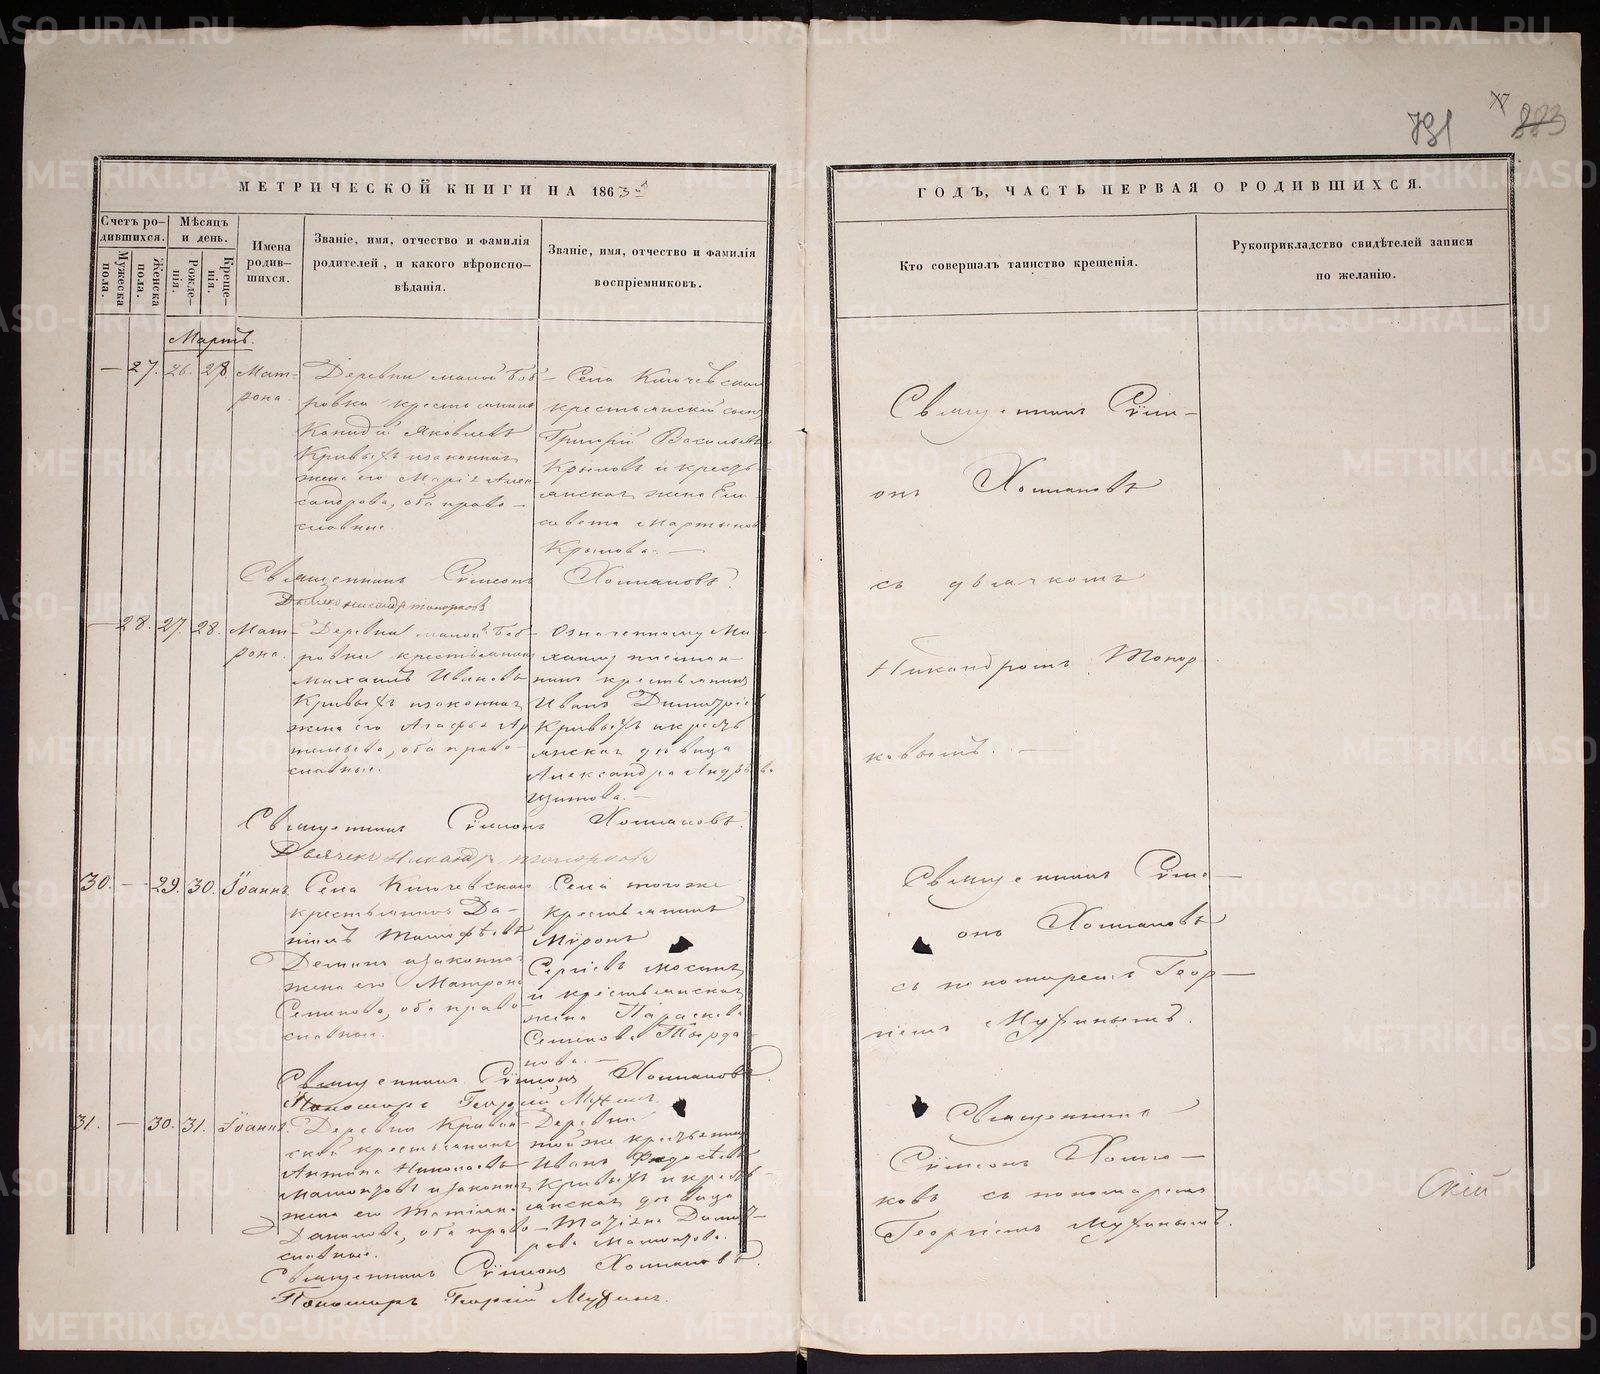 791
883
МЕТРИЧЕСКОЙ КНИГИ НА 1863й
ГОДЪ, ЧАСТЬ ПЕРВАЯ О РОДИВШИХСЯ.
Счетъ ро-
дившихся.
Мужеска
пола.
Женска
пола.
Мѣсяцъ
и день.
Рожде-
нія.
Креще-
нія.
Имена
родив-
шихся.
Званіе, имя, отчество и фамилія
родителей, и какого вѣроиспо-
вѣданія.
Званіе, имя, отчество и фамилія
воспріемниковъ.
Кто совершалъ таинство крещенія.
Рукоприкладство свидѣтелей записи
по желанію.
Мартъ.
— 27. 26. 28
Мат-
рона.
Деревни малой Боб-
ровки крестьянинъ
Яковлевъ
Кривыхъ изаконная
жена его Марія Алек
сандрова, оба право-
славные.
Села Ключевскаго
крестьянскій сынъ
Григорій Васильевъ
Крыловъ и кресть-
янская жена Ели
савета Мартынова
Крылова. —
Священникъ Сѵмеонъ Холмановъ.
Дьячекъ Никандръ Топорковъ
Священникъ Сѵме-
онъ Холмановъ
съ дьячкомъ
Никандромъ Топор-
ковымъ. —
— 28. 27. 28.
Мат-
рона.
Деревни малой Боб-
ровки крестьянинъ
Михаилъ Ивановъ
Кривыхъ изаконная
жена его Агафья Ар
оба право-
славные.
Означенному Ми-
крестьянинъ
Иванъ Димитріевъ
Кривыхъ и кресть
янская дѣвица
Александра Андреева
Священникъ Сѵмеонъ Холмановъ.
Дьячекъ Никандръ Топорковъ
30. — 29. 30.
Іоаннъ
Села Ключевскаго
крестьянинъ Да-
нилъ Тимофѣевъ
Деминъ изаконная
жена его Матрона
Семенова, оба право
славные.
Села тогоже
крестьянинъ
Мѵронъ
Сергіевъ Мосинъ
и крестьянская
жена Параскева
Семенова
нова. —
Священникъ Сѵмеонъ Холмановъ.
Пономарь Георгій Мухинъ.
Священникъ Сѵме-
онъ Холмановъ
съ пономаремъ Геор-
гіемъ Мухинымъ.
31. — 30. 31.
Іоаннъ.
Деревни Кривин-
ской крестьянинъ
Антипа Николаевъ
Мамонтовъ изаконная
жена его Татіана
Данилова, оба право-
славные.
Деревни
тойже крестьянинъ
Иванъ Федосѣевъ
Кривыхъ и кресть-
янская дѣвица
Татіана
Мамонтова.
Священникъ Сѵмеонъ Холмановъ.
Пономарь Георгій Мухинъ.
Священникъ
Сѵмеонъ Холма-
новъ съ пономаремъ
Георгіемъ Мухинымъ.